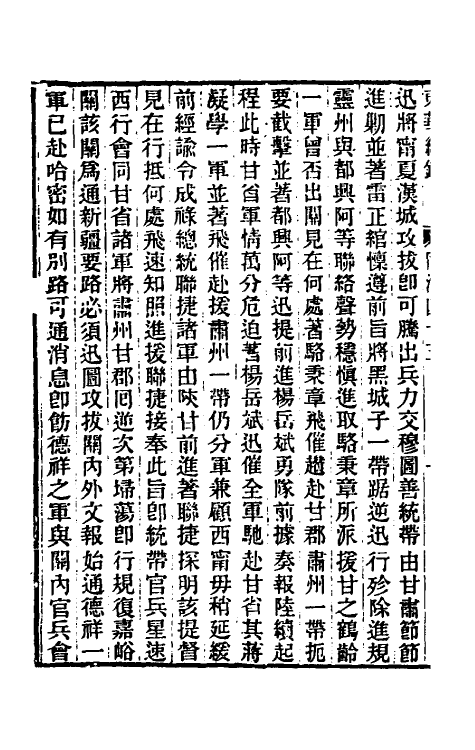 迅將甯夏漢城攻拔卽可騰出兵力交穆圖善統帶由甘肅節節
進勦並著雷正綰懍遵前旨將黑城子一帶踞逆迅行殄除進規
靈州與都興阿等聯絡聲勢穩愼進取駱秉章所派援甘之鶴齡
一軍曾否出關見在何處著駱秉章飛催趲赴甘郡肅州一帶扼
要截擊並著都興阿等迅提前進楊岳斌勇隊前據奏報陸續起
程此時甘省軍情萬分危迫著楊岳斌迅催全軍馳赴甘省其蔣
凝學一軍並著飛催赴援肅州一帶仍分軍兼顧西甯毋稍延緩
前經諭令成祿總統聯捷諸軍由陜甘前進著聯捷探明該提督
見在行抵何處飛速知照進援聯捷接奉此旨卽統帶官兵星速
西行會同甘省諸軍將肅州甘郡回逆次第埽蕩卽行規復嘉峪
關該關爲通新疆要路必須迅圖攻拔關內外文報始通德祥一
軍已赴哈密如有別路可通消息卽飭德祥之軍與關內官兵會